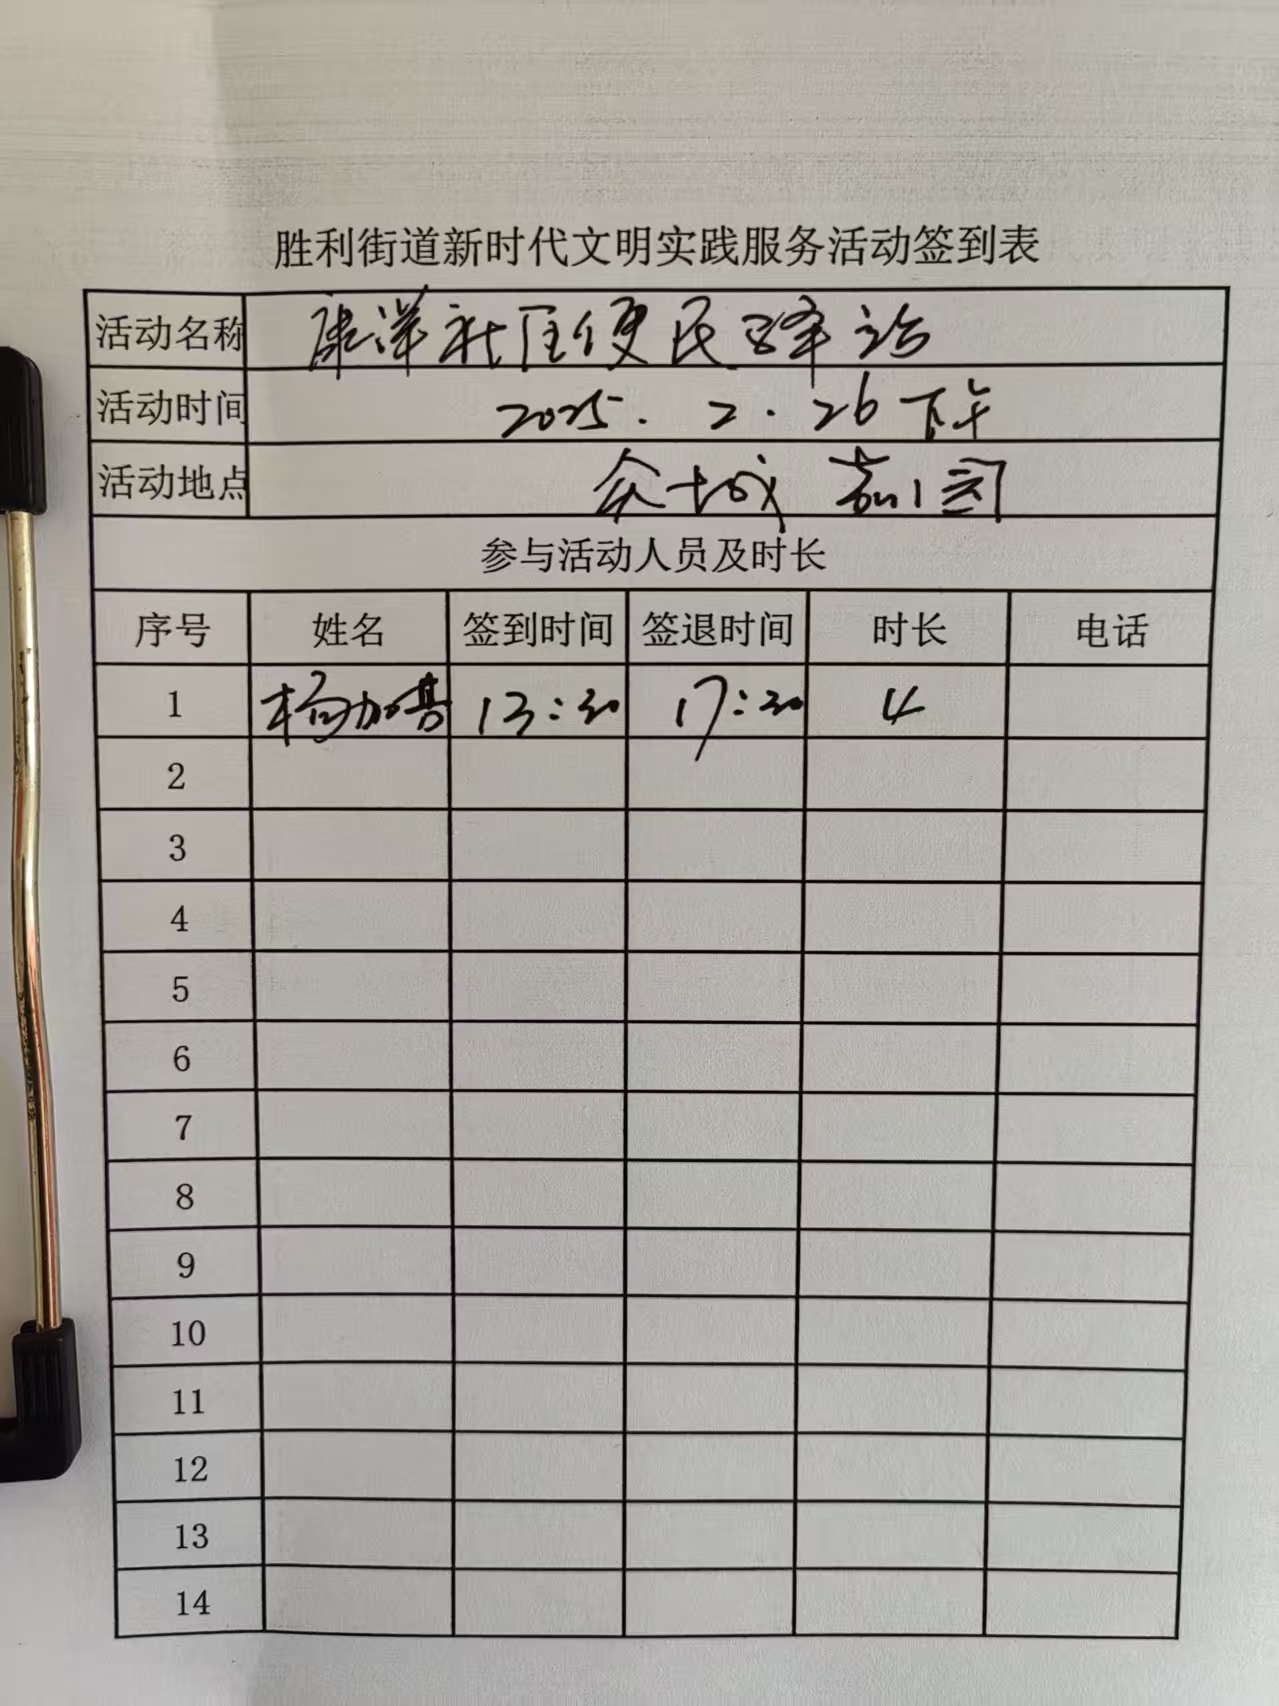 胜利街道新时代文明实践服务活动签到表
活动名称 康洋社区便民驿站
活动时间 2025.2.26下午
活动地点 众城嘉园
参与活动人员及时长
序号 姓名 签到时间 签退时间 时长 电话
1 杨加 13:30 17:30 4
2
3
4
5
6
7
8
9
10
11
12
13
14